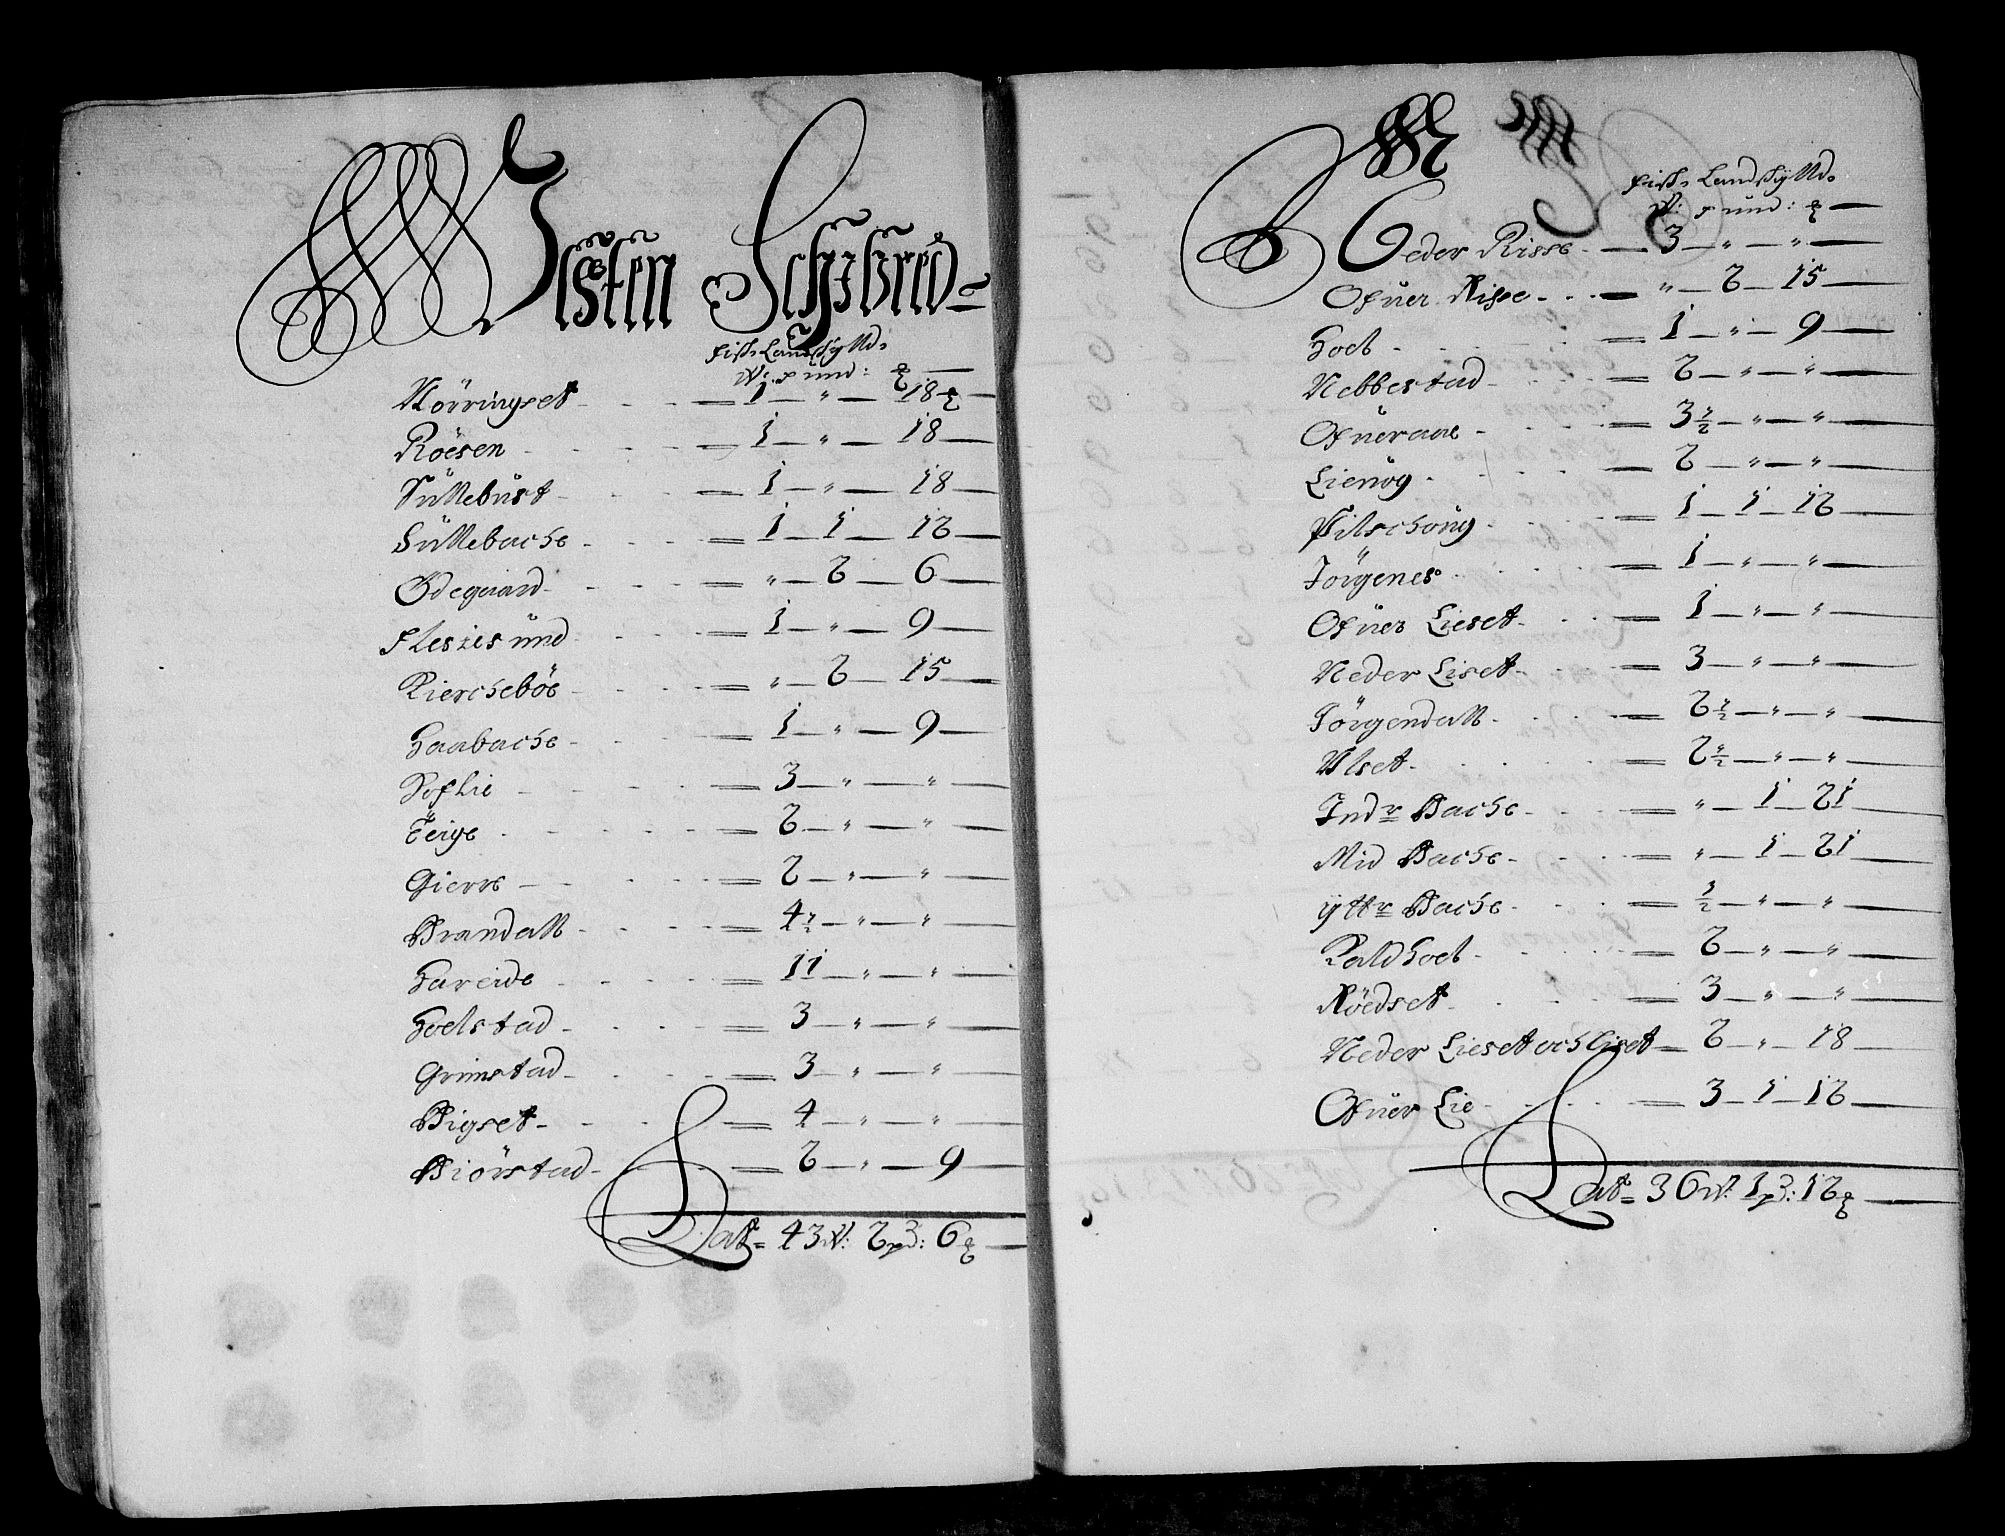 Ulsten Schibred
Fisk: Landskylld:
W: pund: ℔
Körringset — 1 — " — 18 ℔
Röesen — 1 — " — 18
Süllebüst — 1 — " — 18
Süllebache — 1 — 1 — 12
Ödegaard — " — 2 — 6
Flesiesünd — 1 — " — 9
Kiercheböe — " — 2 — 15
Haabache — 1 — " — 9
Roflie — 3 — " — "
Teige — 2 — " — "
Gierre — 2 — " — "
Brandall — 4½ — " — "
Hareide — 11 — " — "
Hoelstad — 3 — " — "
Grimstad — 3 — " — "
Bigset — 4 — " — "
Biörstad — 2 — " — 9
Lat= 43 W: 2 pd: 6 ℔
Fisk: Landskylld:
W: pund: ℔
Neder Risse — 3 — " — "
Ofüer Risse — " — 2 — 15
Hoel — 1 — " — 9
Nebbestad — 2 — " — "
Ofüeraae — 3½ — " — "
Lienög — 2 — " — "
Pilschoug — 1 — 1 — 12
Jörgenes — 1 — " — "
Ofüer Lieset — 1 — " — "
Neder Liset — 3 — " — "
Jörgendall — 2½ — " — "
Ulset — 2½ — " — "
Indr Bache — " — 1 — 21
Mid Bache — " — 1 — 21
Yttr Bache — ½ — " — "
Kaldhoel — 2 — " — "
Röedset — 3 — " — "
Neder Lieset och Liset — 2 — " — 18
Ofüer Lie — 3 — 1 — 12
Lat= 36 W: 1 pd: 12 ℔